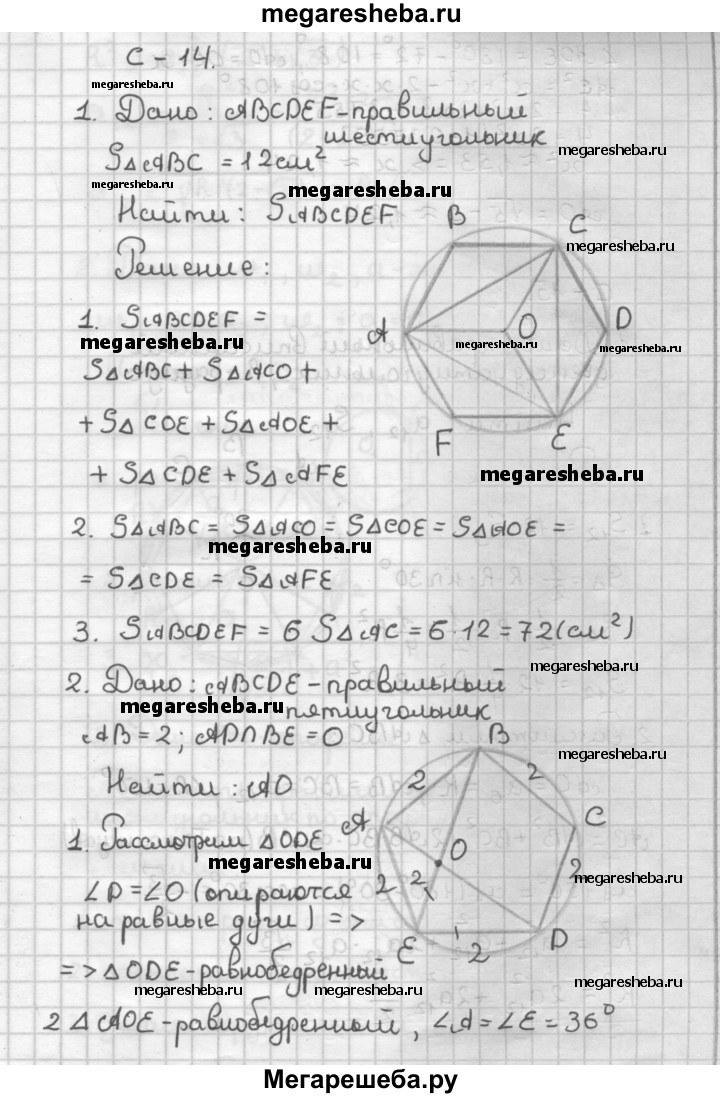 megaresheba.ru
С - 14.
megaresheba.ru
1. Дано: ABCDEF - правильный
шестиугольник
megaresheba.ru
S△ABC = 12 см²
megaresheba.ru
megaresheba.ru
Найти: SABCDEF
B
C
megaresheba.ru
Решение:
1. SABCDEF =
A
O
D
megaresheba.ru
megaresheba.ru
megaresheba.ru
S△ABC + S△ACO +
+ S△COE + S△AOE +
F
E
+ S△CDE + S△AFE
megaresheba.ru
2. S△ABC = S△ACO = S△COE = S△AOE =
megaresheba.ru
= S△CDE = S△AFE
3. SABCDEF = 6 S△AC = 6·12 = 72 (см²)
megaresheba.ru
2. Дано: ABCDE - правильный
megaresheba.ru
пятиугольник
AB = 2; AD∩BE = O
B
megaresheba.ru
Найти: AO
2
2
A
C
1. Рассмотрим △ODE
O
megaresheba.ru
2
megaresheba.ru
∠D = ∠O (опираются
2
2
на равные дуги) =>
E
D
2
=> △ODE - равнобедренный
megaresheba.ru
megaresheba.ru
megaresheba.ru
2 △AOE - равнобедренный, ∠A = ∠E = 36°
Мегарешеба.ру